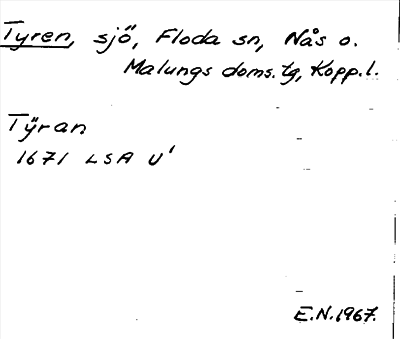 Tyren, sjö, Floda sn, Nås o.
Malungs doms.tg, Kopp.l.
Tÿran
1671 LSA U'
E.N.1967.